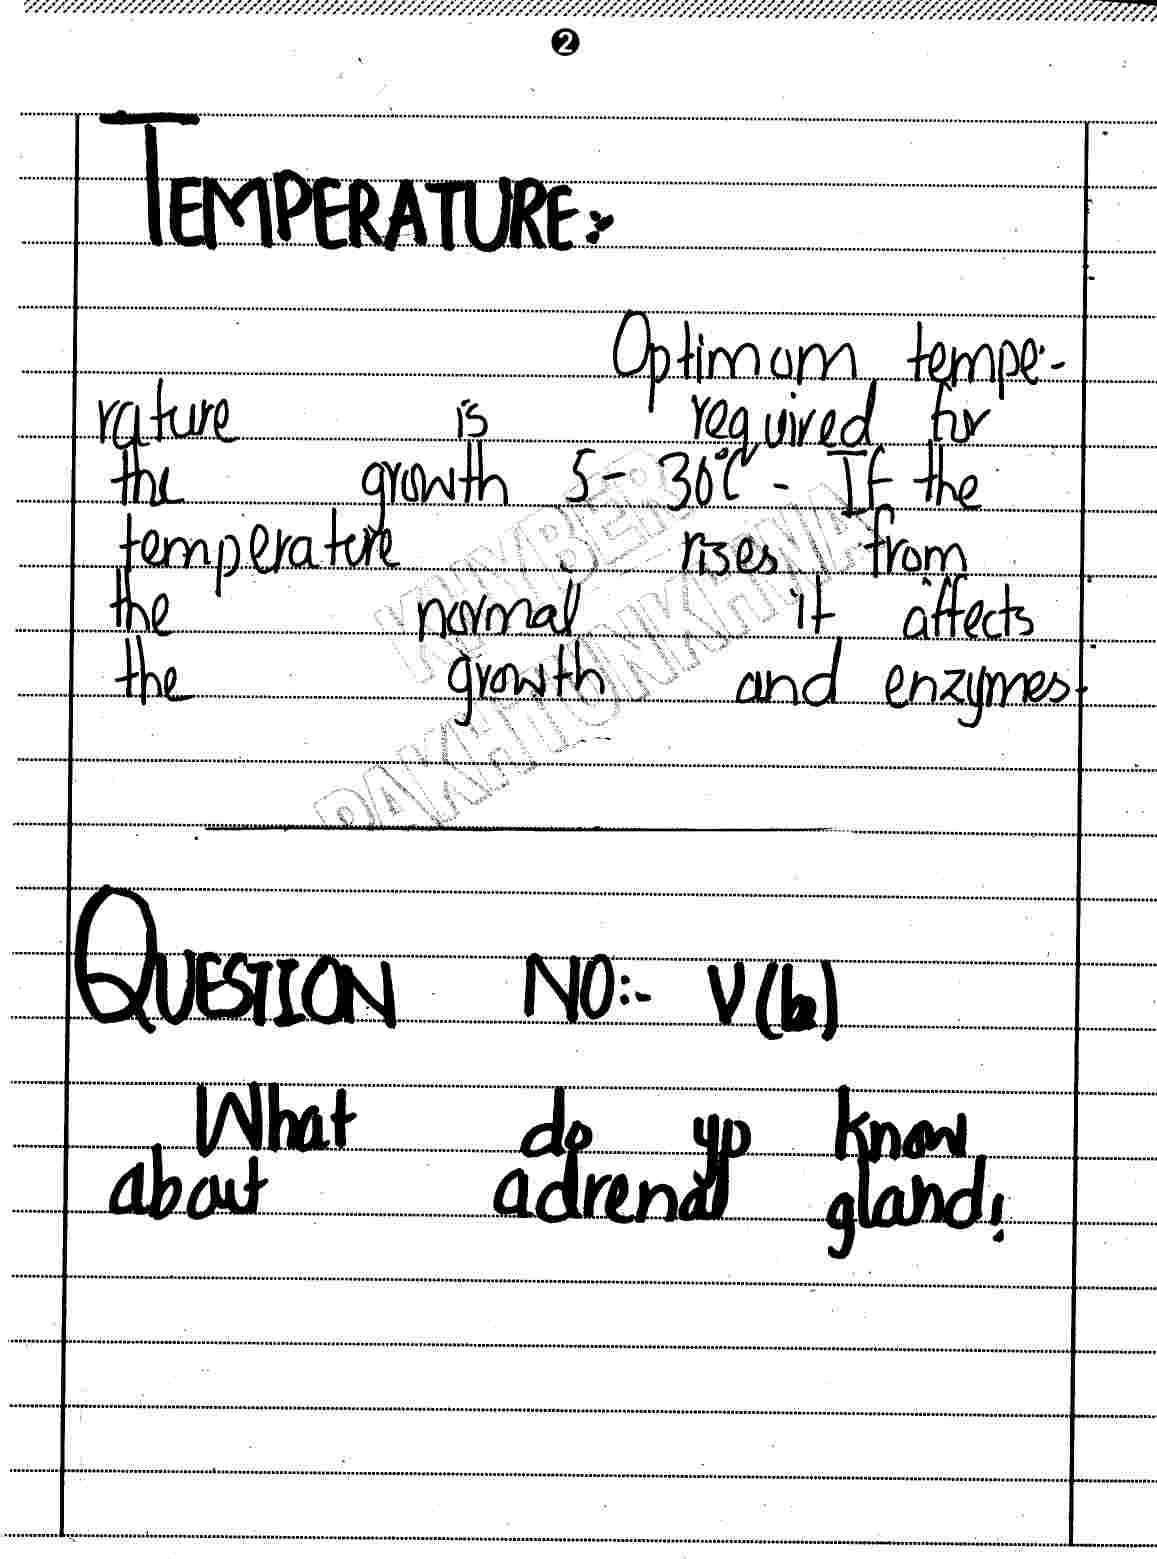 2
TEMPERATURE:-
Optimum tempe-
rature is required for
the growth 5-30°C. If the
temperature rises from
the normal it affects
the growth and enzymes.
KHYBER
PAKHTUNKHWA
QUESTION NO:- V(b)
What do yo know
about adrenal gland!